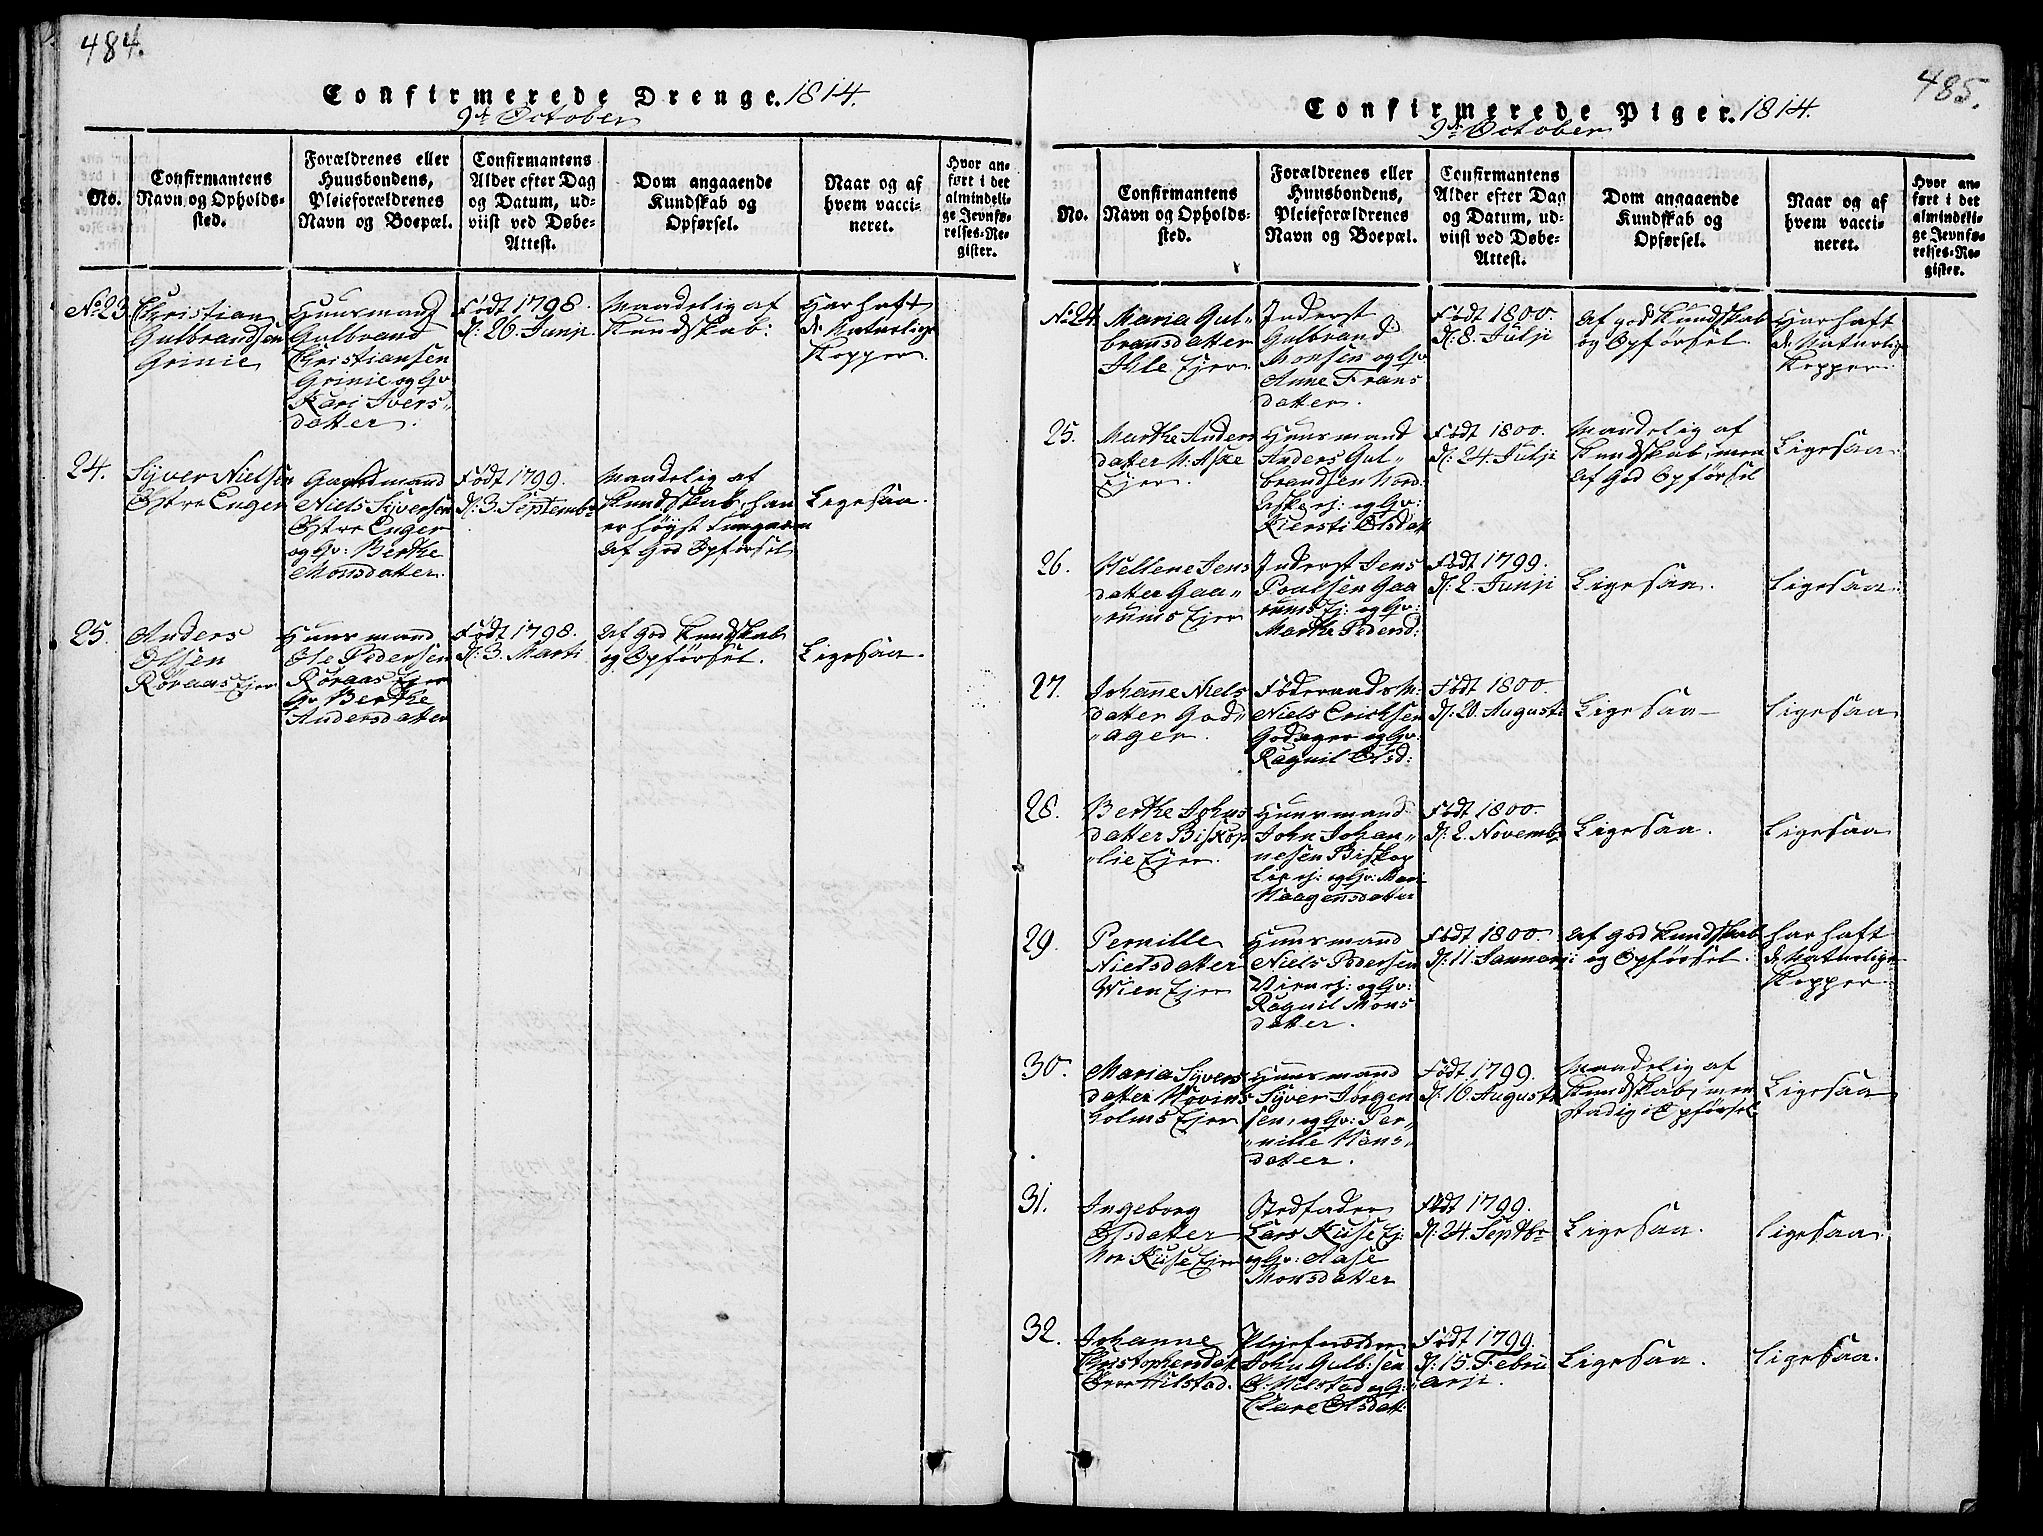 484.
Confirmerede Drenge. 1814.
9de October
No.
Confirmantens Navn og Opholds-sted.
Forældrenes eller Huusbondens, Pleieforældrenes Navn og Boepæl.
Confirmantens Alder efter Dag og Datum, ud-viist ved Døbe-Attest.
Dom angaaende Kundskab og Opførsel.
Naar og af hvem vacci-neret.
Hvor an-ført i det almindeli-ge Jevnfø-relses-Re-gister.
No 23
Christian
Gulbrandsen
Grinie
Huusmand
Gulbrand
Christiansen
Grinie og Gv
Kari Ivers„
datter.
Født 1798.
d: 26. Junji
Maadelig af
Kundskab:
Har haft
d: Naturlige
Kopper.
24.
Syver Nielsen
Østre Enger
Gaardmand
Niels Syversen
Østre Enger
og Gv: Berthe
Monsdatter.
Født 1799.
d: 3. Septembr
Maadelig af
Kundskab, han
er høyst
af God Opførsel
Ligesaa.
25.
Anders
Olsen
Røraas Ejer
Huusmand
Ole Pedersen
Røraas Ejer
Gv Berthe
Andersdatter
Født 1798.
d: 3. Marti
af God Kundskab
og Opførsel.
Ligesaa.
485.
Confirmerede Piger. 1814.
9de October
No.
Confirmantens Navn og Opholds-sted.
Forældrenes eller Huusbondens, Pleieforældrenes Navn og Boepæl.
Confirmantens Alder efter Dag og Datum, ud-viist ved Døbe-Attest.
Dom angaaende Kundskab og Opførsel.
Naar og af hvem vacci-neret.
Hvor an-ført i det almindeli-ge Jevnfø-relses-Re-gister.
No 24
Maria Gul„
bransdatter
Ihle Ejer
Inderst
Gulbrand
Monsen og Gv
Anne Frans
datter.
Født 1800.
d: 8. Julji
af god Kundskab
og Opførsel
Har haft
d: Naturlige
Kopper
25.
Marthe Anders
datter N: Aske
Ejer.
Huusmand
Anders Gul„
brandsen Nord
Aske ej: og Gv:
Kiersti Olsdat
Født 1800.
d: 24. Julji
Maadelig af
Kundskab, men
af God Opførsel
Ligesaa
26.
Hellene Jens
datter Gaa„
„rums Ejer
Inderst Jens
Poulsen Gaa
rums Ej: og Gv:
Marthe Pedersd:
Født 1799.
d: 2. Junji
Ligesaa.
Ligesaa
27.
Johanne Niels
datter God„
„ager.
Føderaads M:
Niels Erichsen
Godager og Gv.
Ragnil Olsd:
Født 1800.
d: 20. Augusti
Ligesaa
Ligesaa
28.
Berthe Johns
datter Biskop
„lie Ejer.
Huusmand
John Johan„
nesen Biskop
lie ej: og Gv: Mari
Haagensdatter
Født 1800.
d: 2. Novembr
Ligesaa.
Ligesaa
29.
Pernille
Nielsdatter
Wien Ejer
Huusmand
Niels Pedersen
Vien ej: og Gv:
Ragnil Mons
datter.
Født 1800.
d: 11. Januarji
af god Kundskab
og Opførsel.
har haft
d: Naturlige
Kopper
30.
Maria Syvers
datter Hovins
holms Ejer
Huusmand
Syver Jørgen
sen, og Gv: Per„
„nille Hans„
datter.
Født 1799.
d: 16. Augusti
Maadelig af
Kundskab, men
stadig i Opførsel
Ligesaa
31.
Ingeborg
Olsdatter
Nor: Kuse Ejer
Stedfader
Lars Kuse Ej:
og Gv: Aase
Monsdatter
Født 1799.
d: 24. Septbr
Ligesaa.
ligesaa
32.
Johanne
Christophersdat
Øvre Hilstad.
Plejefader
John Gulb:sen
Ø: Hilstad og G:
Clare Olsdatt:
Født 1799.
d: 15. Febru
„arji.
Ligesaa.
ligesaa.